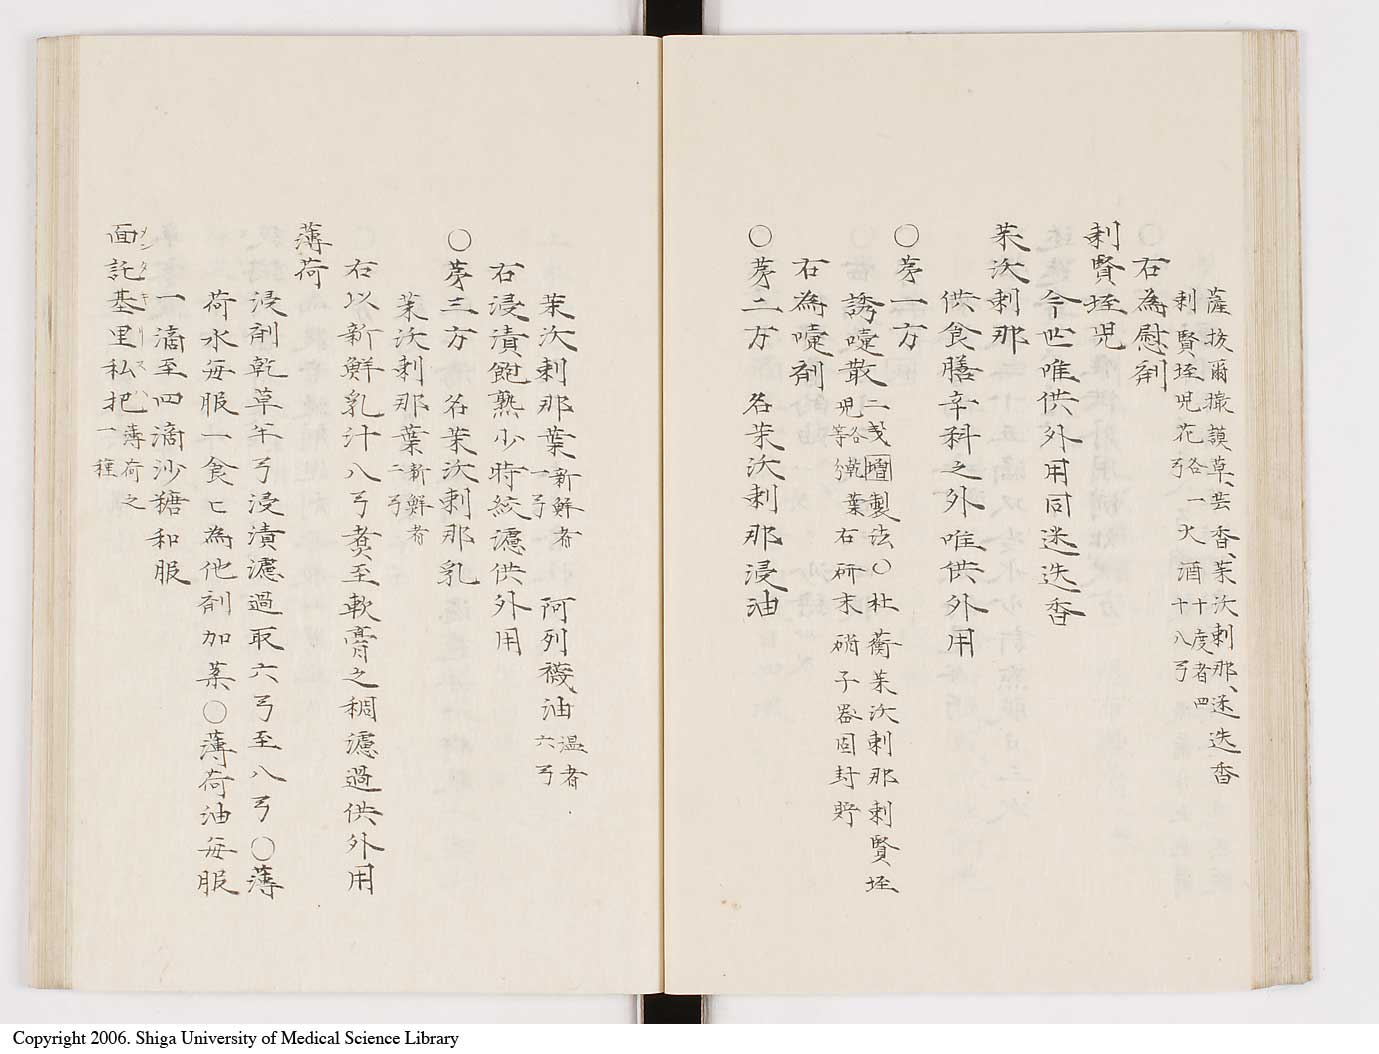 薩抜爾撒謨草、芸香、茉沃剌那、迷迭香
剌賢垤児花各一弓 火酒十度者四十八弓
右為慰剤
剌賢垤児
今世唯供外用同迷迭香
茉沃剌那
供食膳辛科之外唯供外用
○苐一方
誘嚏散二戔 囗増製法○杜蘅茉沃剌那剌賢垤
児各等分乾葉右研末硝子器固封貯
右為嚏剤
○苐二方 名茉沃剌那浸油
茉沃剌那葉新鮮者一弓 阿列襪油温者六弓
右浸漬飽熟少時絞濾供外用
○苐三方 名茉沃剌那乳
茉沃剌那葉新鮮者二弓
右以新鮮乳汁八弓煑至軟膏之稠濾過供外用
薄荷
浸剤乾草半弓浸漬濾過取六弓至八弓○薄
荷水毎服一食匕為他剤加薬○薄荷油毎服
一滴至四滴沙糖和服
面託基里私把薄荷之一種
メンタキリスハ
Copyright 2006. Shiga University of Medical Science Library